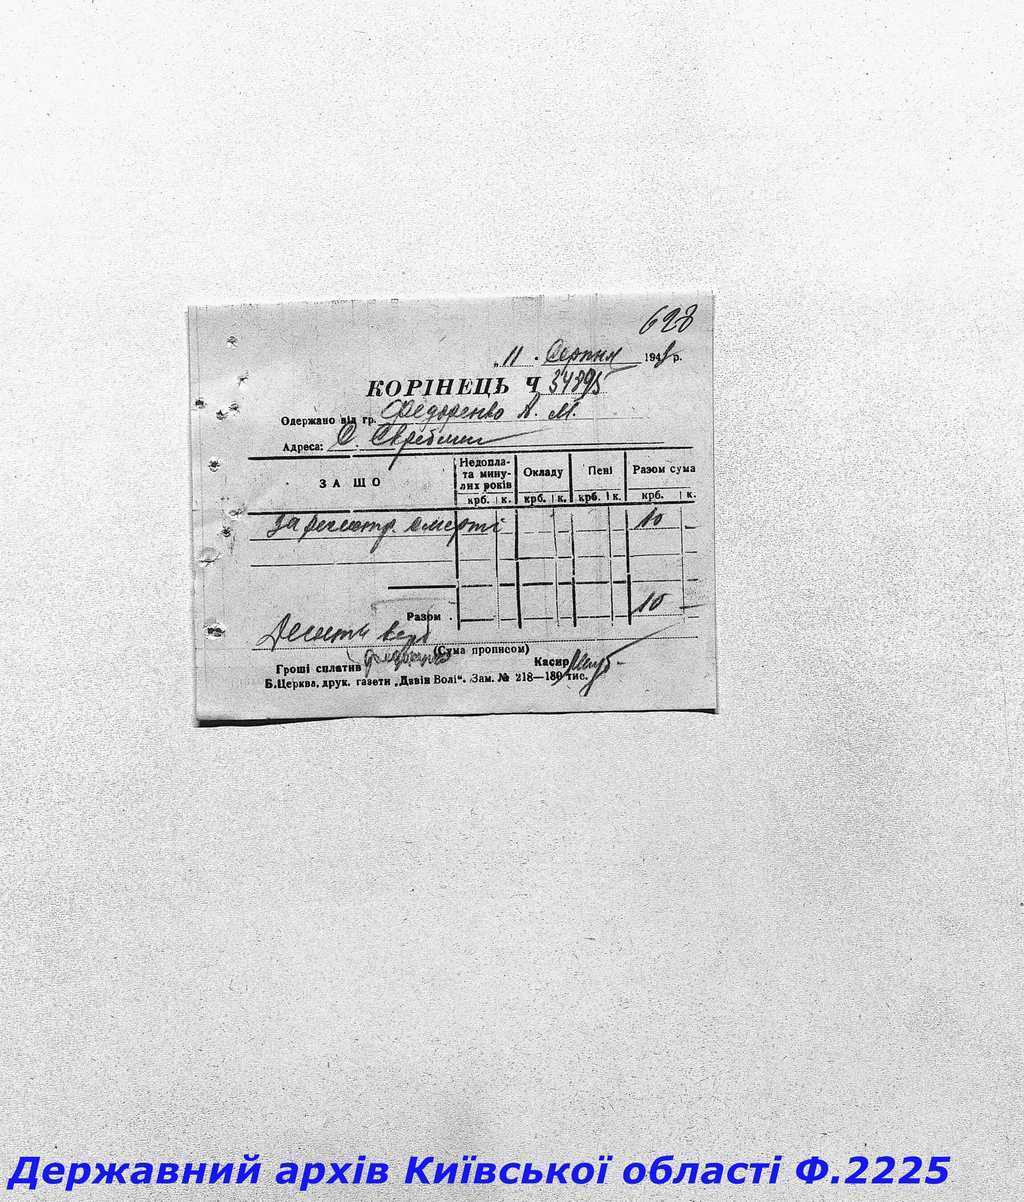 628
„ 11 " Серпня 194 р.
КОРІНЕЦЬ Ч 34895
Одержано від гр. Федоренко А. М.
Адреса: С.
ЗА ЩО
Недопла-
та мину-
лих років
Окладу
Пені
Разом сума
крб. к. крб. к. крб. к. крб. к.
За регистр. смерті 10 —
Разом . 10 —
Десять карб
(Сума прописом)
Гроші сплатив Касир
Б.Церква, друк. газети „Дзвін Волі". Зам. № 218—180 тис.
Державний архів Київської області Ф.2225